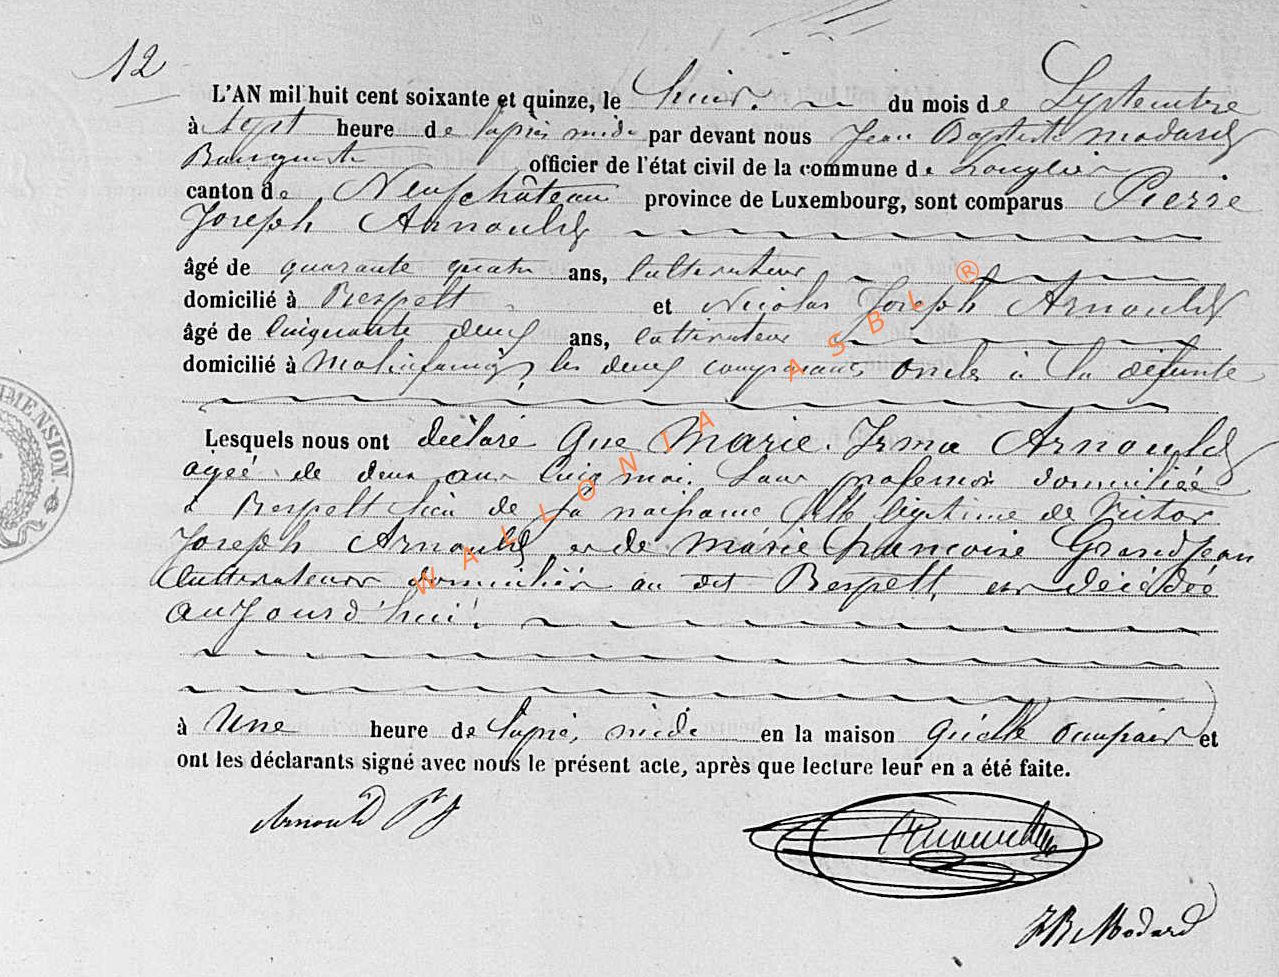 12
L'AN mil huit cent soixante et quinze, le du mois de Septembre
à Sept heure de l'après midi par devant nous Jean Baptiste Modard
Bourgmestre officier de l'état civil de la commune de Longlier
canton de Neufchâteau province de Luxembourg, sont comparus Pierre
Joseph Arnould
âgé de quarante quatre ans, Cultivateur
domicilié à Respelt et Nicolas Joseph Arnould
âgé de Cinquante deux ans, Cultivateur
domicilié à Molinfaing, les deux comparants oncles à la défunte
Lesquels nous ont déclaré Que Marie. Irma Arnould
agée de deux ans Cinq mois Sans profession domiciliée
à Respelt lieu de sa naissance fille légitime de Victor
Joseph Arnould et de Marie Françoise Grandjean
Cultivateurs domiciliés au dit Respelt, est décédée
aujourd'hui
à Une heure de l'après midi en la maison qu'elle occupait et
ont les déclarants signé avec nous le présent acte, après que lecture leur en a été faite.
Arnould P J
JB Modard
WALLONIA ASBL ®
MENSION.